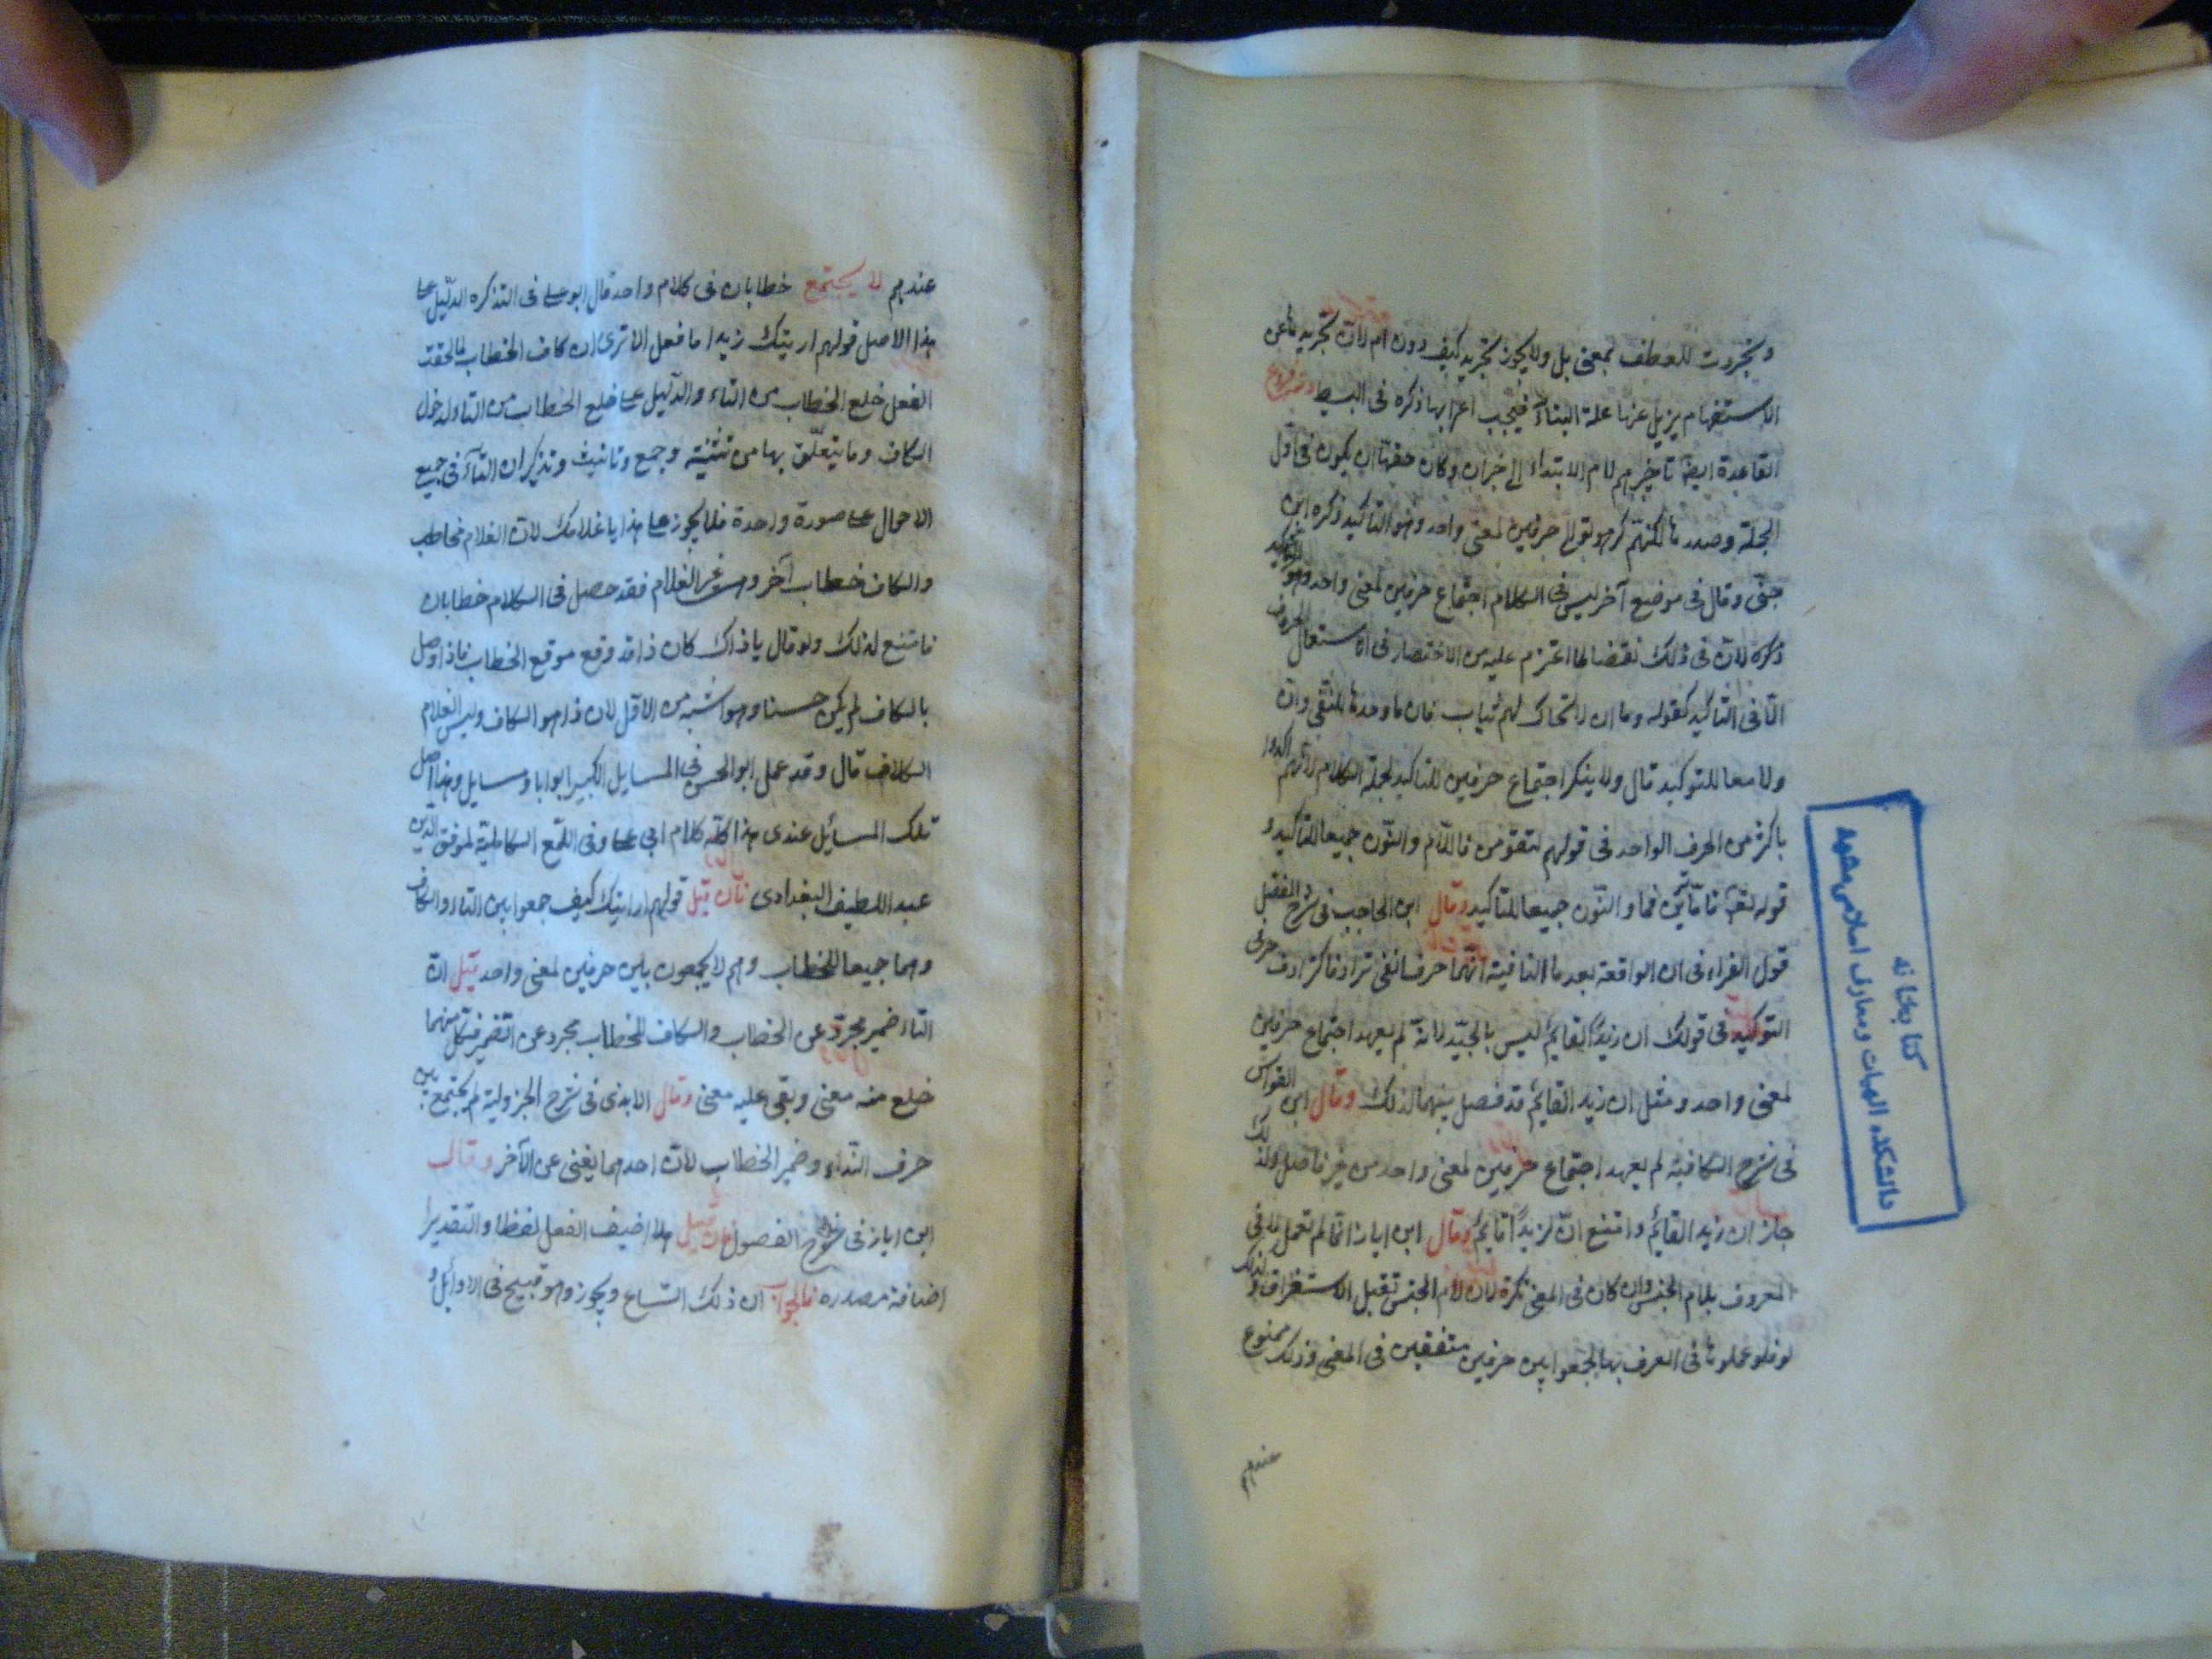 وتجردت للعطف بمعنى بل ولا يجوز تجريد كيف دون ام لان تجريدها عن
الاستفهام يزيل عنها علة البناء فيجب اعرابها ذكره فى البسيط ومن فروع
القاعدة ايضا تاخيرهم لام الابتداء الى خبر ان وكان حقها ان يكون فى اول
الجملة وصدرها لكنهم كرهوا توالى حرفين لمعنى واحد وهو التأكيد ذكره ابن
جنى وقال فى موضع آخر ليس فى الكلام اجتماع حرفين لمعنى واحد وهو
ذكره لان فى ذلك نقضا لما اعتزم عليه من الاختصار فى استعمال الحروف
الا فى التأكيد كقوله وما ان لا تحاك لهم ثياب فان ما وحدها للنفى وان
ولا معا للتوكيد قال ولا ينكر اجتماع حرفين للتأكيد لجملة الكلام لانهم اكدوا
باكثر من الحرف الواحد فى قولهم لتقومن فاللام والنون جميعا للتأكيد و
قوله فاما ترين فما والنون جميعا للتأكيد وقال ابن الحاجب فى شرح المفصل
قول الفراء فى ان الواقعة بعد ما النافية انهما حرفا نفى ترادفا كترادف حرفى
التوكيد فى قولك ان زيدا لقايم ليس بالجيد لانه لم يعهد اجتماع حرفين
لمعنى واحد ومثل ان زيدا لقائم قد فصل بينهما لذلك وقال ابن القواس
فى شرح الكافية لم يعهد اجتماع حرفين لمعنى واحد من غير فاصل ولذلك
جاز ان زيدا لقائم وامتنع ان لزيدا قايم وقال ابن اياز انما لم تعمل لا فى
المعروف بلام الجنس وان كان فى المعنى نكرة لان لام الجنس تقبل الاستغراق وكذلك
لو فلو عملوها فى المعرف بها لجمعوا بين حرفين متفقين فى المعنى وذلك ممنوع
عندهم
كتابخانه
دانشكده الهيات ومعارف اسلامى مشهد
عندهم لا يجتمع خطابان فى كلام واحد قال ابو على فى التذكره الدليل على
هذا الاصل قولهم ارايتك زيدا ما فعل الا ترى ان كاف الخطاب لما لحقت
الفعل خلع الخطاب من التاء والدليل على خلع الخطاب من التاء دخول
الكاف وما يتعلق بها من تثنية وجمع وتانيث وتذكير ان التاء فى جميع
الاحوال على صورة واحدة فلا يجوز على هذا يا غلامك لان الغلام مخاطب
والكاف خطاب آخر وهو غير الغلام فقد حصل فى الكلام خطابان
فامتنع لذلك ولو قال يا ذاك كان ذا قد وقع موقع الخطاب فاذا وصل
بالكاف لم يكن حسنا وهو اشبه من الاول لان ذا هو الكاف وليس الغلام
الكاف قال وقد عمل ابو الحسن فى المسايل الكبير ابوابا ومسايل وهذا اصل
تلك المسائل عندى هذا كله كلام ابى على وفى اللمع الكاملية لموفق الدين
عبد اللطيف البغدادى فان قيل قولهم ارايتك كيف جمعوا بين التاء والكاف
وهما جميعا للخطاب وهم لا يجمعون بين حرفين لمعنى واحد قيل ان
التاء ضمير مجرد عن الخطاب والكاف للخطاب مجرد عن الضمير فكل منهما
خلع منه معنى وبقى عليه معنى وقال الابذى فى شرح الجزولية لم يجتمع بين
حرف النداء وضمير الخطاب لان احدهما يغنى عن الآخر وقال
ابن اياز فى شرح الفصول فان قيل هلا اضيف الفعل لفظا والتقدير
اضافة مصدره فالجواب ان ذلك اتساع ويجوز وهو قبيح فى الاوائل و